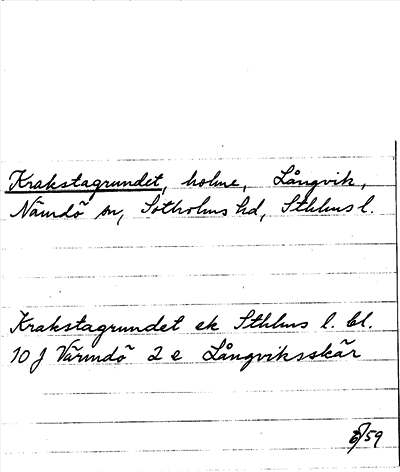 Krakstagrundet, holme, Långvik,
Nämdö sn, Sotholms hd, Sthlms l.
Krakstagrundet ek Sthlms l. bl.
10 J Värmdö 2 e Långviksskär
6/59